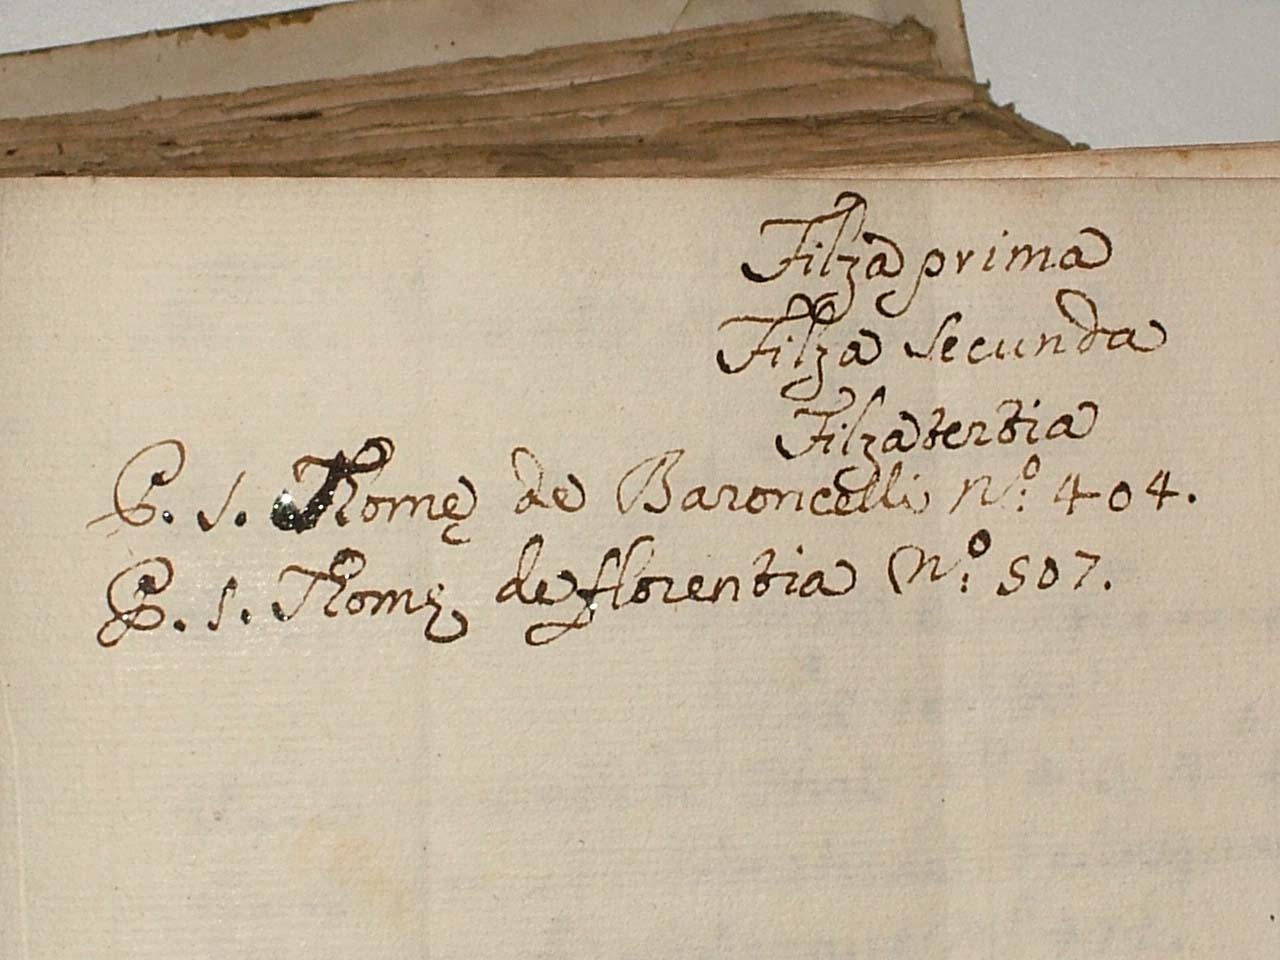 Filza prima
Filza secunda
Filza tertia
E. S. Thomę de Baroncelli nº. 404.
E. S. Thomę de florentia Nº. 507.